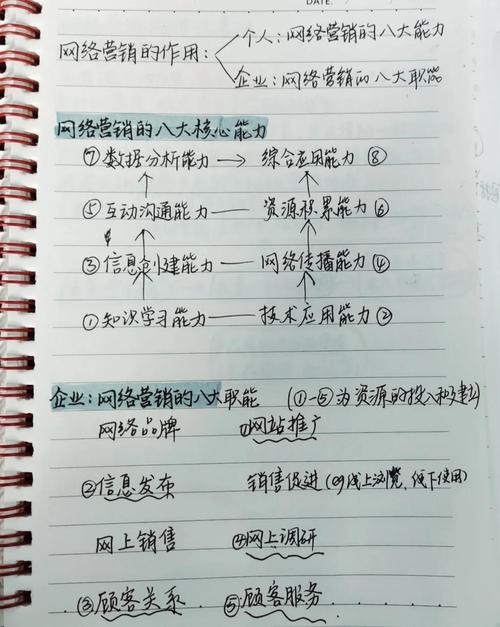 DATE
网络营销的作用：
个人：网络营销的八大能力
企业：网络营销的八大职能
网络营销的八大核心能力
⑦数据分析能力 → 综合应用能力 ⑧
⑤互动沟通能力 — 资源积累能力 ⑥
③信息创建能力 — 网络传播能力 ④
①知识学习能力 — 技术应用能力 ②
企业：网络营销的八大职能 (①-⑤为资源的投入和建立)
网络品牌 ①网站推广
②信息发布 销售促进 (eg线上浏览、线下使用)
网上销售 ④网上调研
③顾客关系 ⑤顾客服务